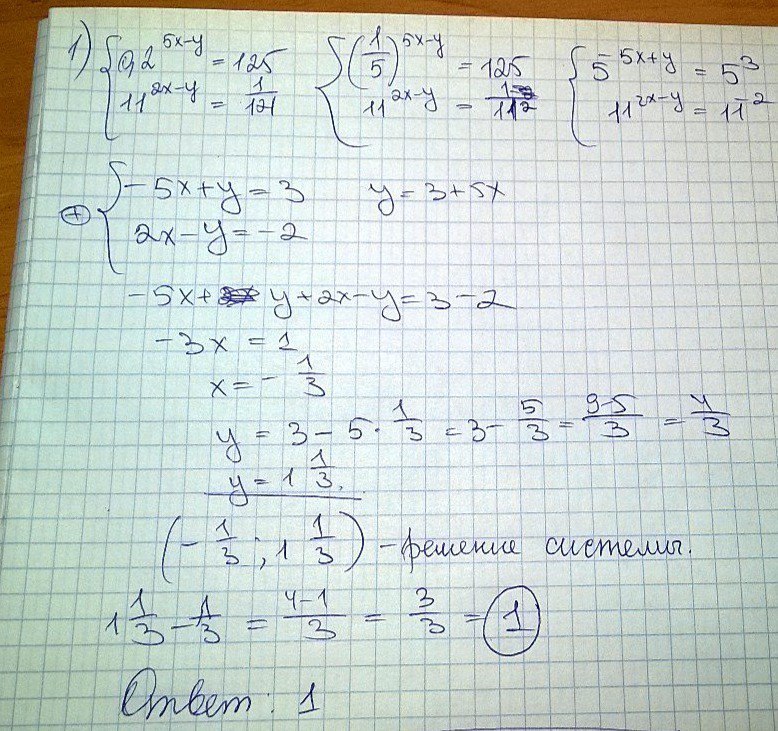 1) { 0,2^(5x-y) = 125 { (1/5)^(5x-y) = 125 { 5^(-5x+y) = 5^3
11^(2x-y) = 1/121 11^(2x-y) = 1/11^2 11^(2x-y) = 11^(-2)
⊕ { -5x+y = 3 y = 3+5x
2x-y = -2
-5x+ y+2x-y = 3-2
-3x = 1
x = -1/3
y = 3 - 5·1/3 = 3 - 5/3 = (9-5)/3 = 4/3
y = 1 1/3.
(-1/3; 1 1/3) - решение системы.
1 1/3 - 1/3 = (4-1)/3 = 3/3 = 1
Ответ: 1